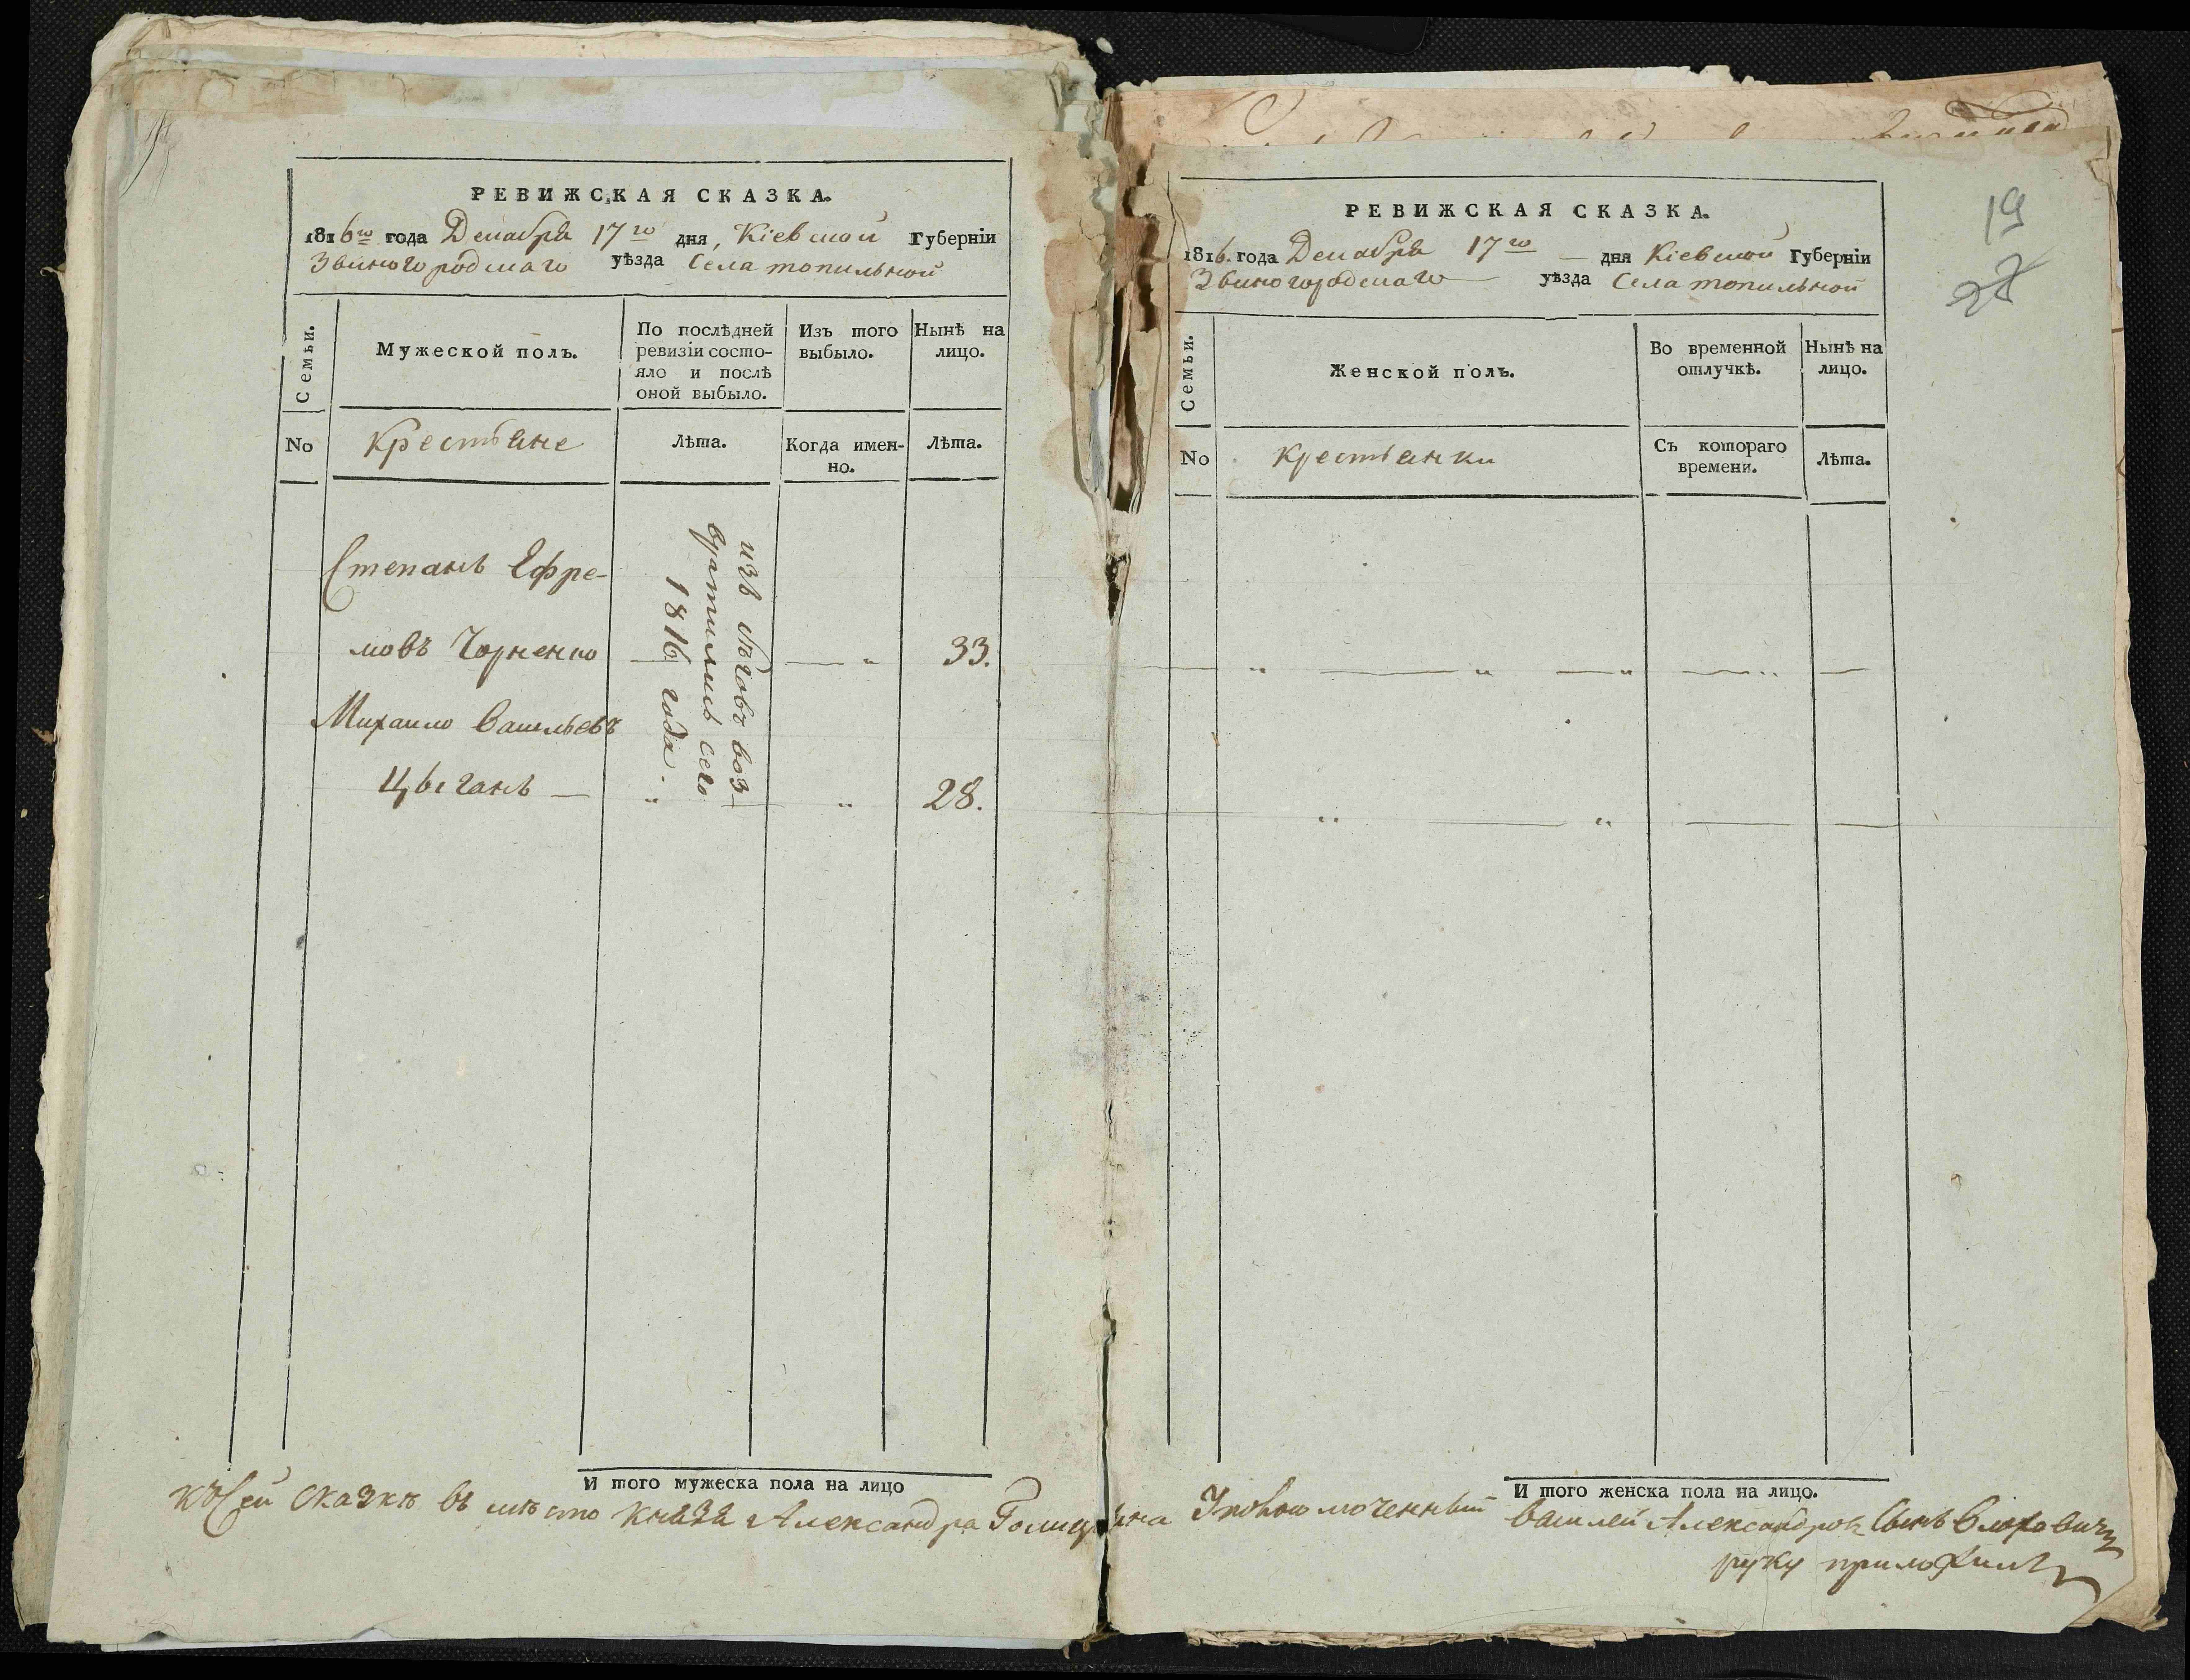 РЕВИЖСКАЯ СКАЗКА.
1816го года Декабря 17го дня, Кіевской Губерніи
Звиногородскаго уѣзда Села топильной
Семьи.
Мужеской полъ.
По послѣдней ревизіи состо-
яло и послѣ
оной выбыло.
Изъ того
выбыло.
Нынѣ на
лицо.
No
Крестьяне
Лѣта.
Когда имен-
но.
Лѣта.
Степанъ Ефре-
мовъ Чорненко 33.
Михаило Васильевъ
Цыганъ 28.
изъ бѣговъ воз-
вратились сего
1816 года.
И того мужеска пола на лицо
РЕВИЖСКАЯ СКАЗКА.
1816. года Декабря 17го дня Кіевской Губерніи
Звиногородскаго уѣзда Села топильной
19
Семьи.
Женской полъ.
Во временной
отлучкѣ.
Нынѣ на
лицо.
No
крестьянки
Съ котораго
времени.
Лѣта.
И того женска пола на лицо.
къ сей сказкѣ въ мѣсто князя Александра Голицына Уполномоченный Василей Александровъ Сынъ
руку приложилъ